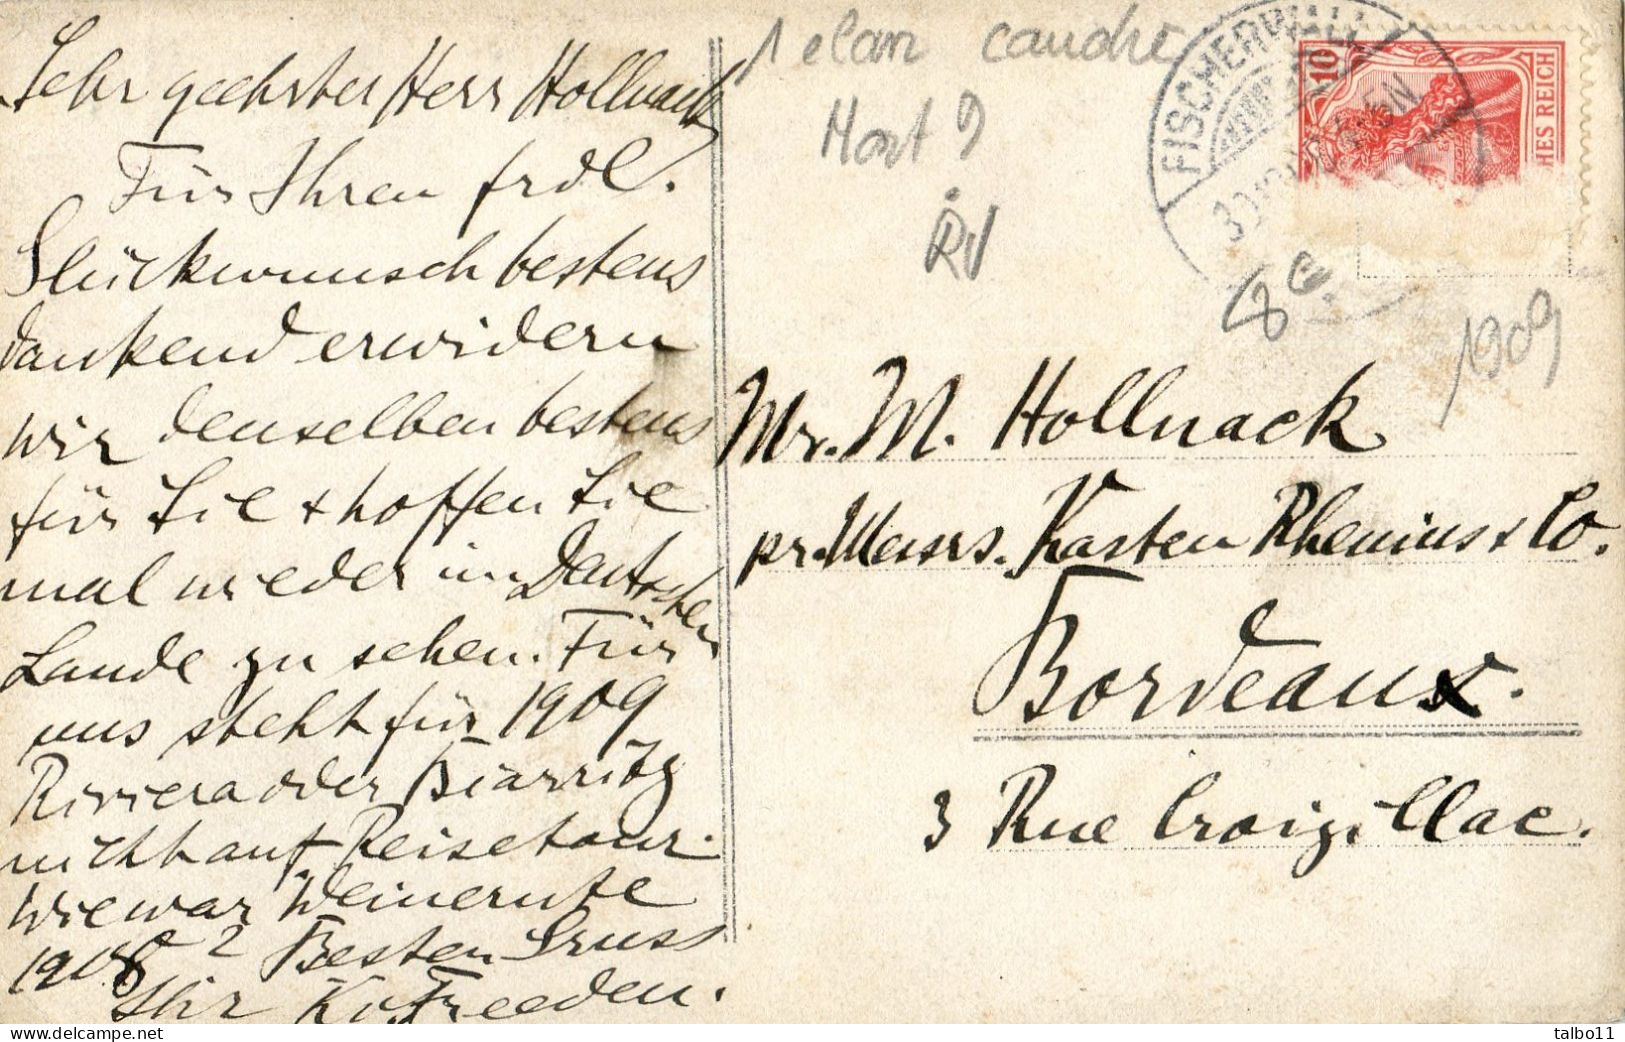 Sehr geehrter Herr Hollnack
Für Ihren frdl.
Glückwunsch bestens
dankend erwidern
wir denselben bestens
für Sie + hoffen Sie
mal wieder im Deutschen
Lande zu sehen. Für
uns steht für 1909
Riviera oder Biarritz
nicht auf Reisetour.
Wie war Weinernte
1908? Besten Gruss
Ihr
1 elan
Mont 9
RV
FISCHERWALL
10
HES REICH
8 e
1909
Mr. M. Hollnack
pr. Messrs. Karsten Rhenius & Co.
Bordeaux.
3 Rue Croiz. Mac.
delcampe.net
talbo11